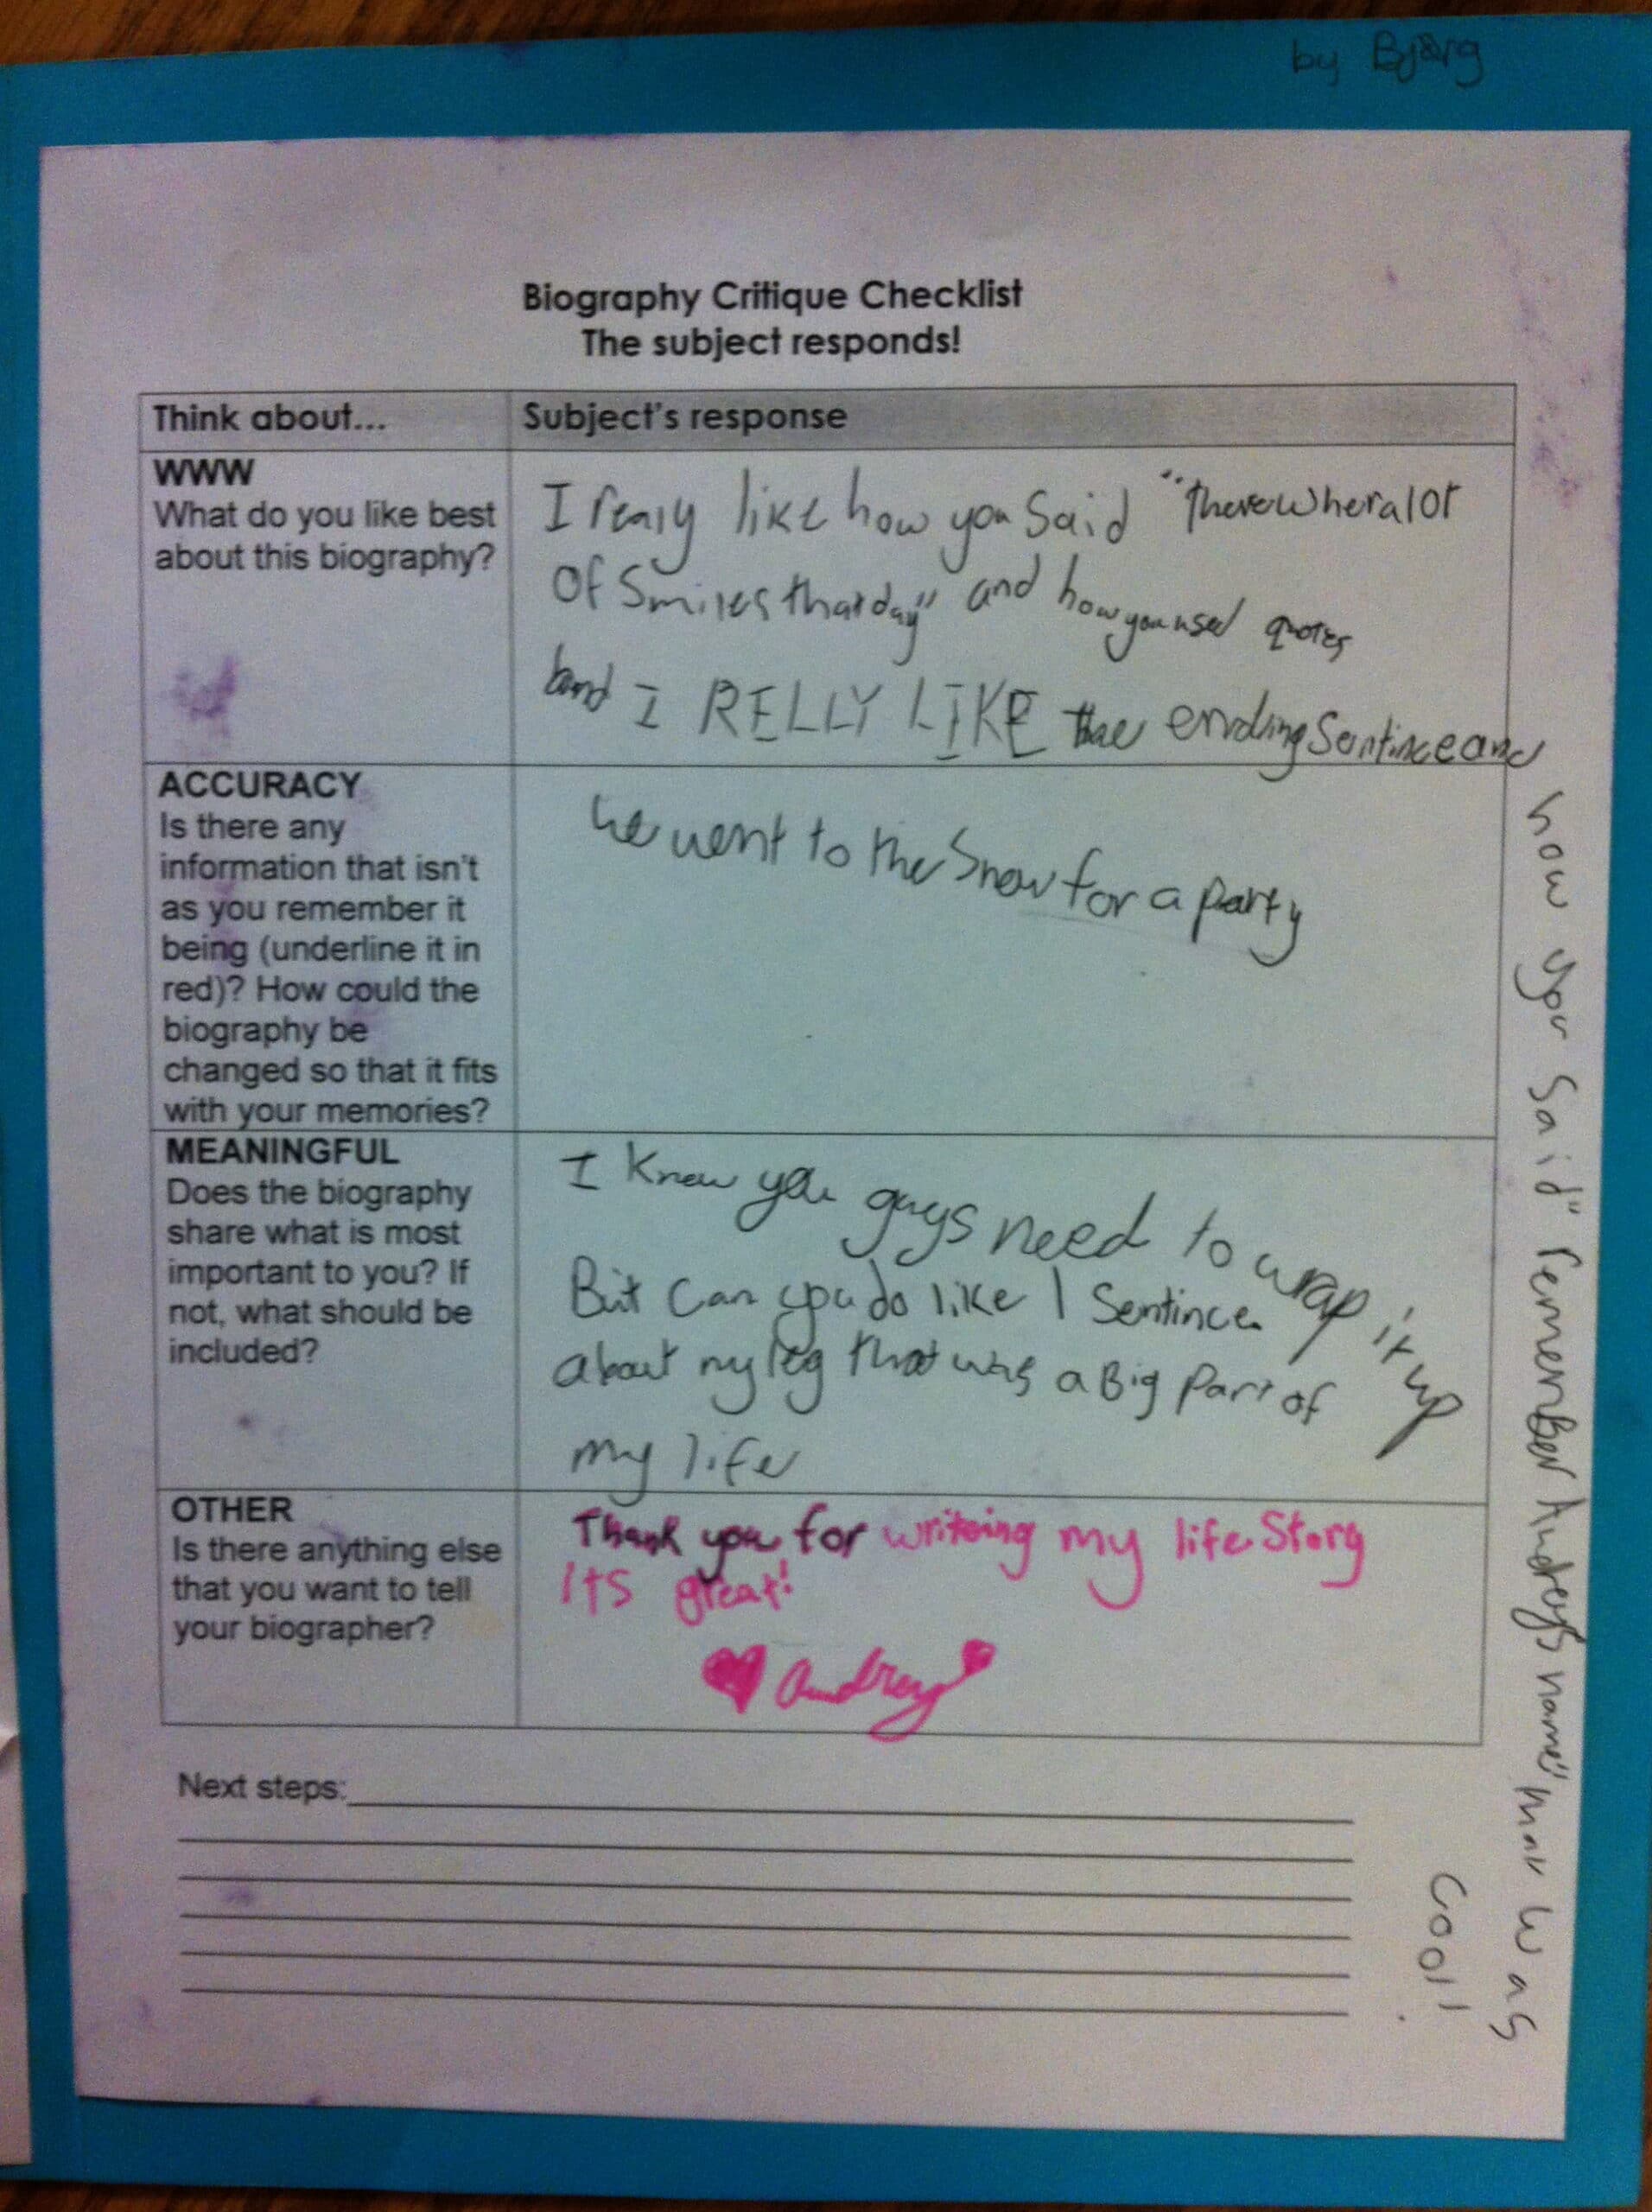 by Bjorg
Biography Critique Checklist
The subject responds!
Think about...
Subject's response
WWW
What do you like best
about this biography?
I realy like how you Said "there wher a lot
Of Smiles that day" and how you used quotes
and I RELLY LIKE the ending Sentince and
how you Said "remember Audrey's name" that was
Cool!
ACCURACY
Is there any
information that isn't
as you remember it
being (underline it in
red)? How could the
biography be
changed so that it fits
with your memories?
we went to the Snow for a party
MEANINGFUL
Does the biography
share what is most
important to you? If
not, what should be
included?
I Know you guys need to wrap it up
But Can you do like 1 Sentince
about my leg that was a Big Part of
my life
OTHER
Is there anything else
that you want to tell
your biographer?
Thank you for writeing my life Story
ITS great!
Audrey
Next steps: